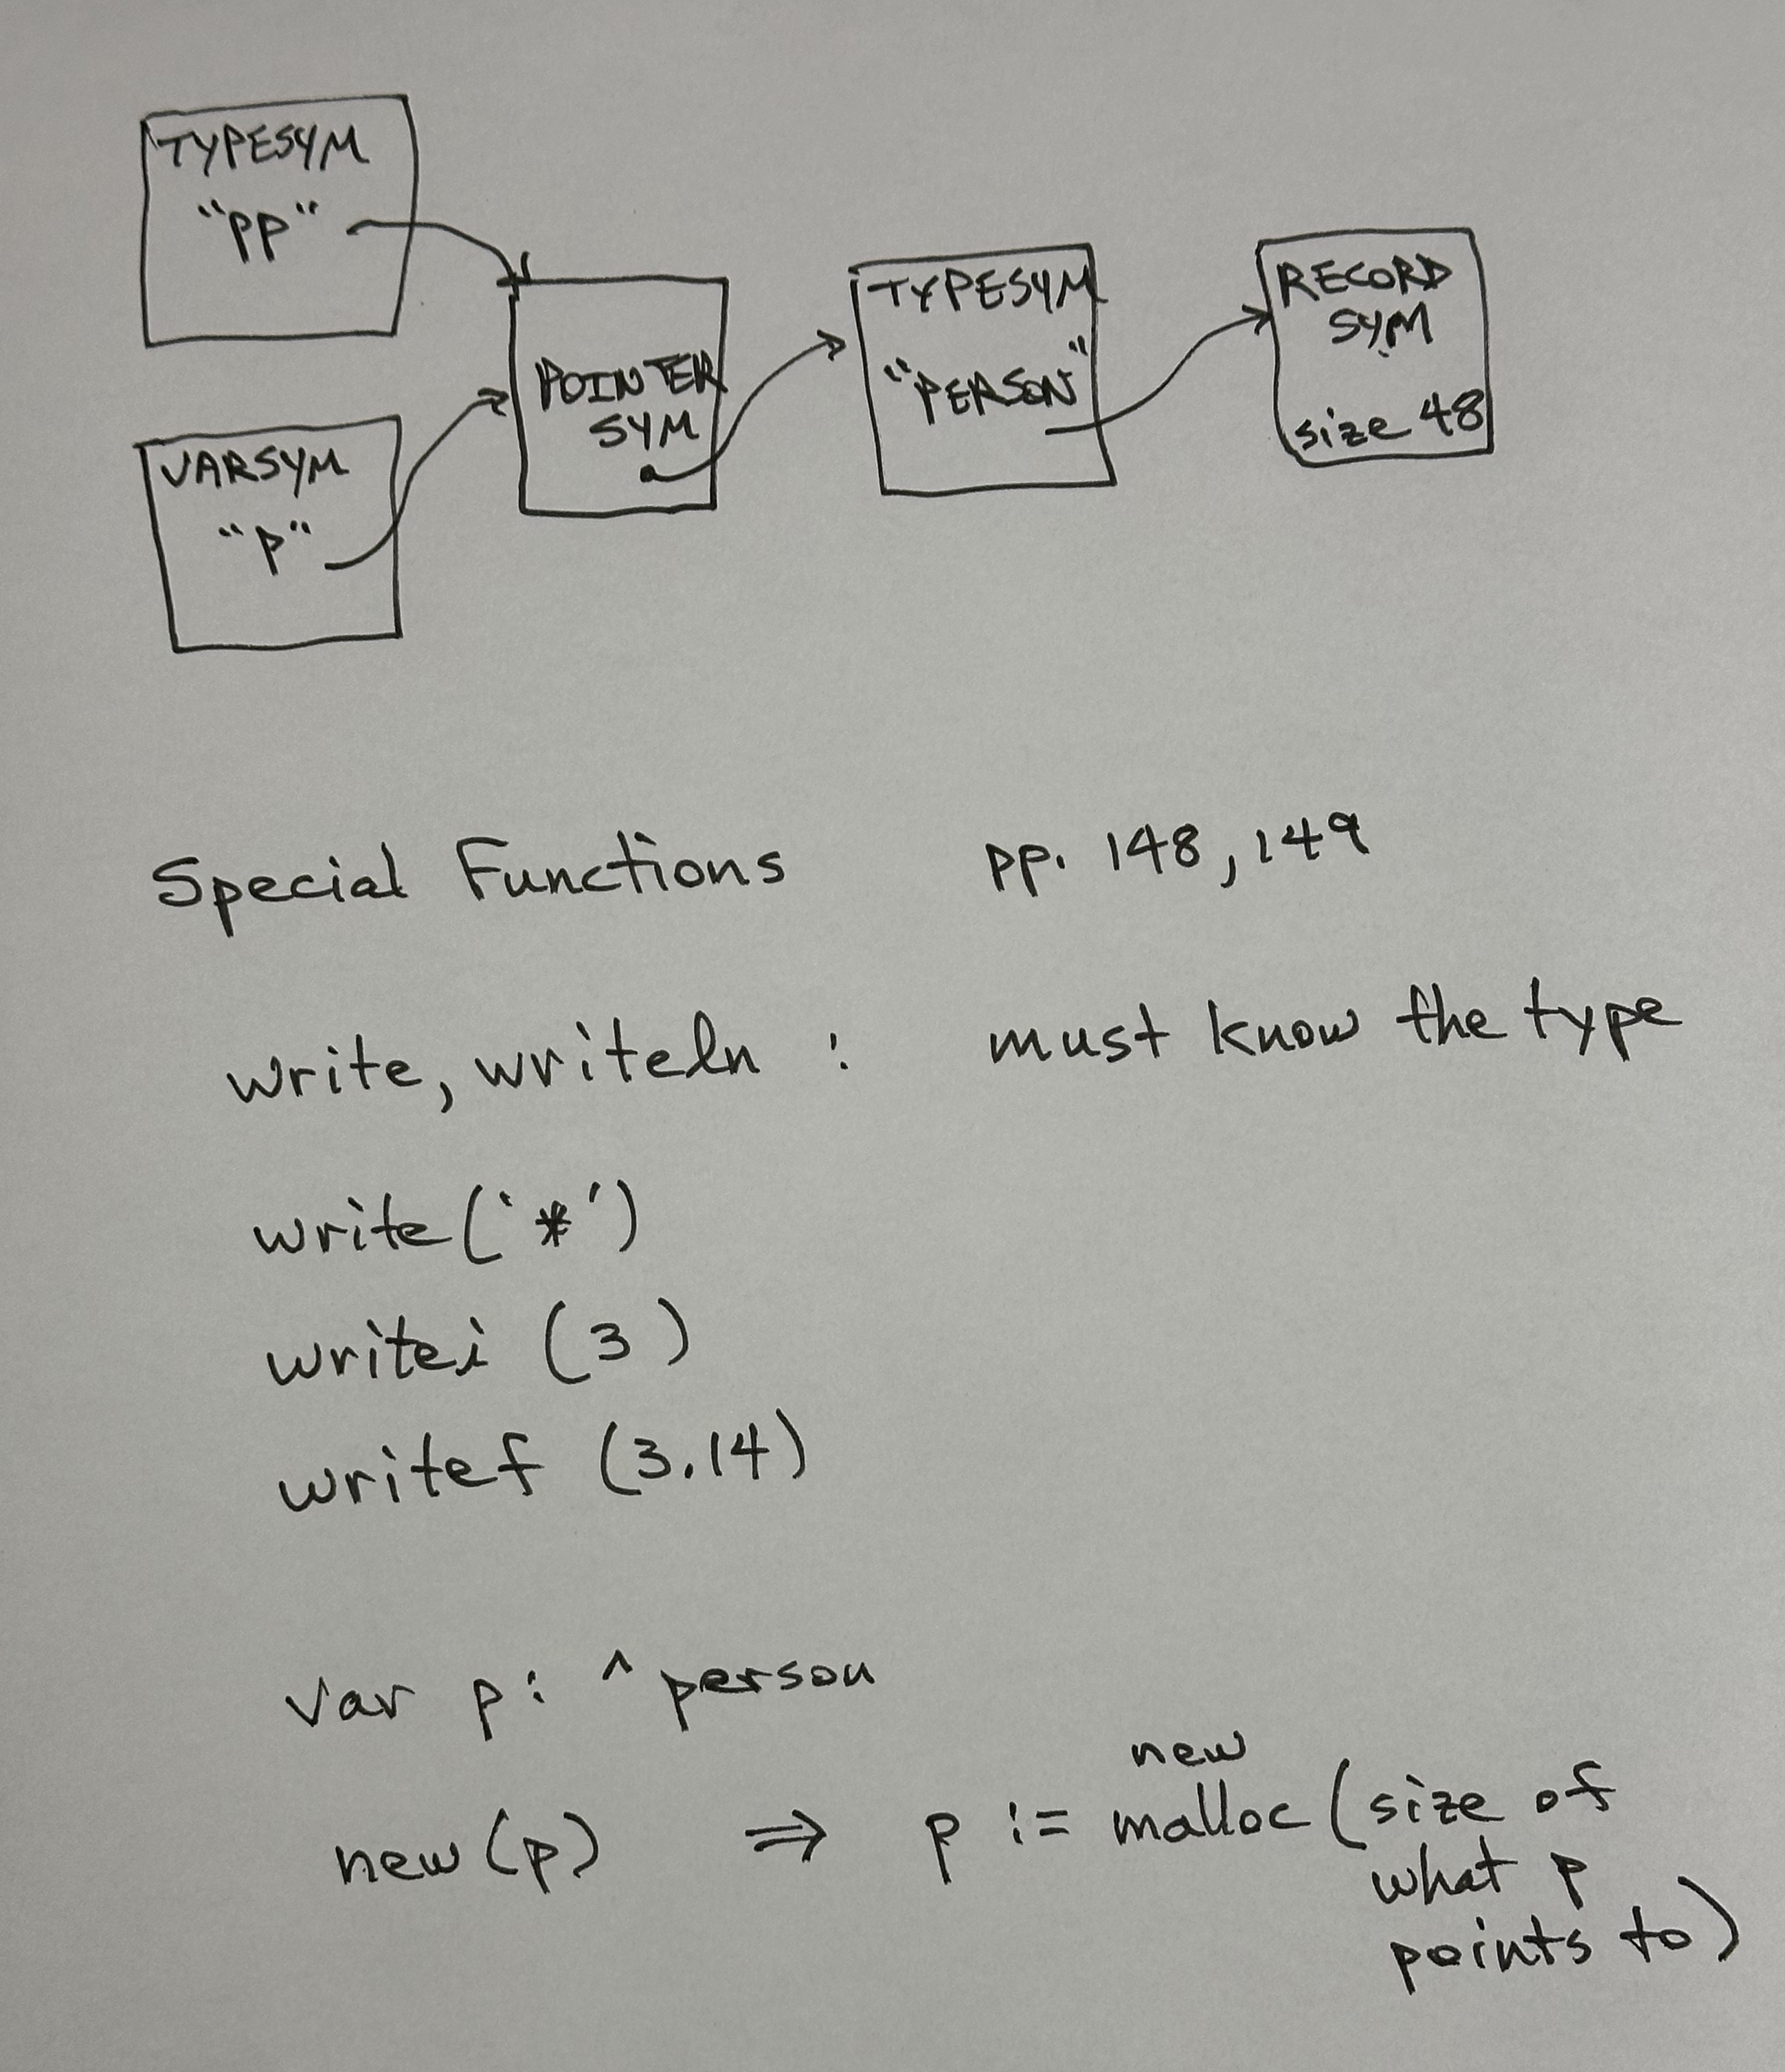 TYPESYM
"PP"
VARSYM
"P"
POINTER
SYM
TYPESYM
"PERSON"
RECORD
SYM
size 48
Special Functions pp. 148, 149
write, writeln : must know the type
write('*')
writei (3)
writef (3.14)
var p: ^person
new
new(p) ⇒ p := malloc (size of
what p
points to)